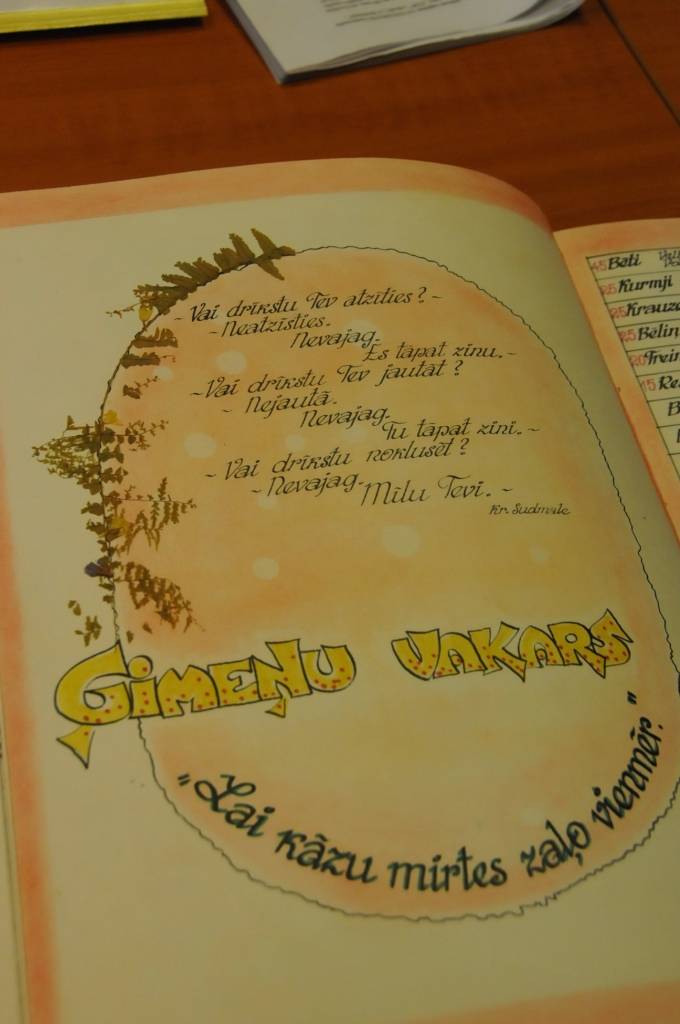 - Vai drīkstu Tev atzīties? -
- Neatzīsties.
Nevajag.
Es tāpat zinu. -
- Vai drīkstu Tev jautāt?
- Nejautā.
Nevajag.
Tu tāpat zini. -
- Vai drīkstu noklusēt?
- Nevajag.
Mīlu Tevi. -
ĢIMEŅU VAKARS
"Lai kāzu mirtes zaļo vienmēr."
Bēti
25 Kurmji
25 Krauze
25 Bēliņ
20 Frein
15 Re
B